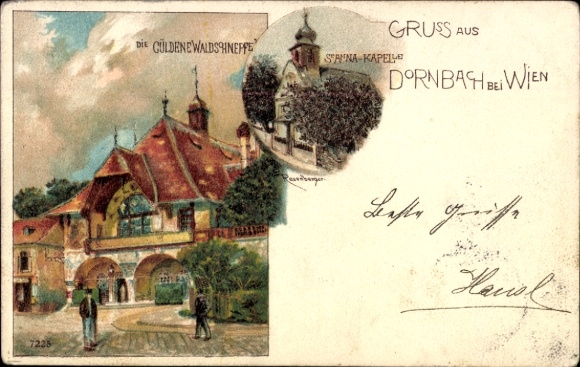 DIE GÜLDENE WALDSCHNEPFE
ST ANNA-KAPELLE
GRUSS AUS
DORNBACH BEI WIEN
Rosenberger.
Beste Grüsse
Hansl
7225